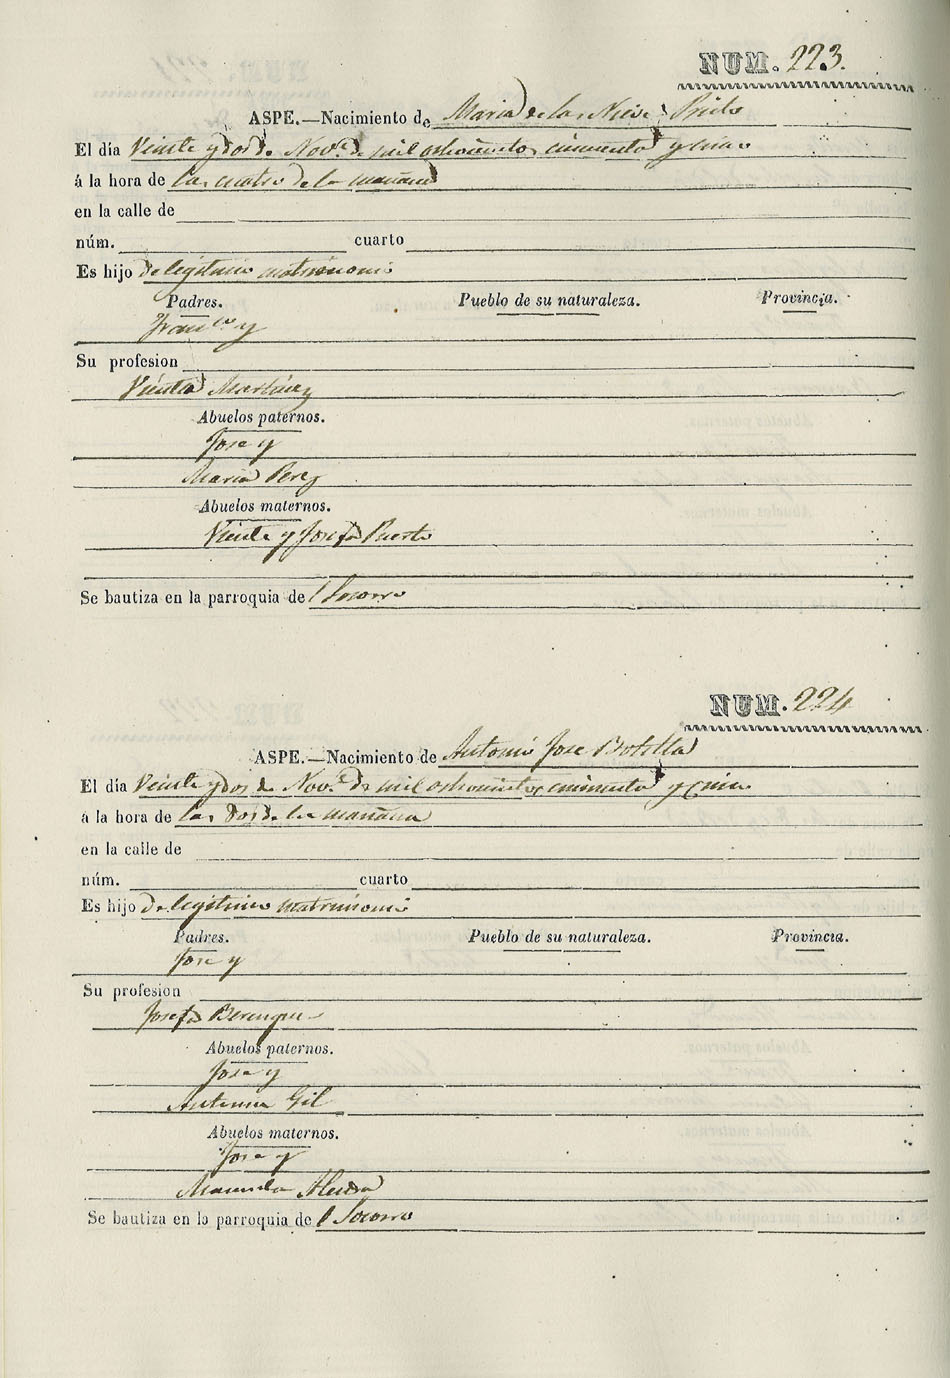 NUM. 223.
ASPE.—Nacimiento de Maria de las Nieves
El día Veinte y dos de Nov.e de mil ochocientos cincuenta y cinco
á la hora de las cuatro de la mañana
en la calle de
núm. cuarto
Es hijo de legitimo matrimonio
Padres. Pueblo de su naturaleza. Provincia.
Fran.co y
Su profesion
Vicenta Martinez
Abuelos paternos.
Jose y
Maria Perez
Abuelos maternos.
Vicente y Josefa Puerto
Se bautiza en la parroquia del Socorro
NUM. 224
ASPE.—Nacimiento de Antonio Jose Botella
El día Veinte y dos de Nov.e de mil ochocientos cincuenta y cinco
á la hora de las dos de la mañana
en la calle de
núm. cuarto
Es hijo de legitimo matrimonio
Padres. Pueblo de su naturaleza. Provincia.
Jose y
Su profesion
Josefa Berenguer
Abuelos paternos.
Jose y
Antonia Gil
Abuelos maternos.
Jose y
Manuela
Se bautiza en la parroquia del Socorro